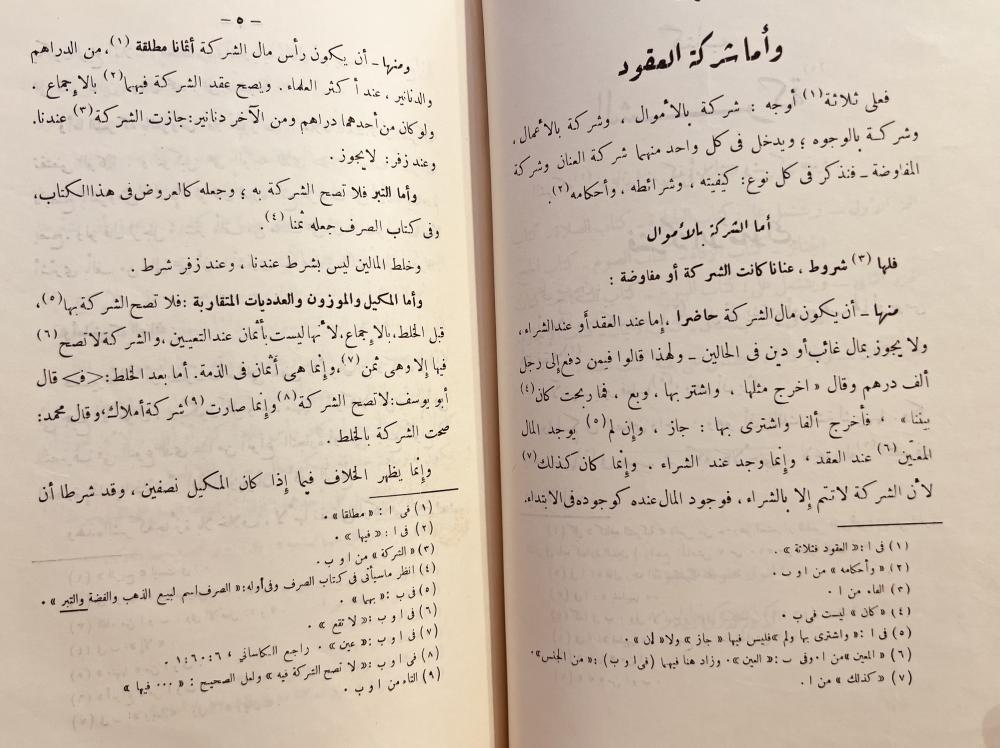 وأما شركة العقود
فعلى ثلاثة(١) أوجه : شركة بالأموال ، وشركة بالأعمال ،
وشركة بالوجوه ؛ ويدخل فى كل واحد منهما شركة العنان وشركة
المفاوضة ــ فنذكر فى كل نوع : كيفيته ، وشرائطه ، وأحكامه(٢) .
أما الشركة بالأموال
فلها(٣) شروط ، عنانا كانت الشركة أو مفاوضة :
منها ــ أن يكون مال الشركة حاضرا ، إما عند العقد أو عند الشراء ،
ولا يجوز بمال غائب أو دين فى الحالين ــ ولهذا قالوا فيمن دفع إلى رجل
ألف درهم وقال « اخرج مثلها ، واشتر بها ، وبع ، فما ربحت كان(٤)
بيننا » ، فأخرج ألفا واشترى بها : جاز ، وإن لم(٥) يوجد المال
المعين(٦) عند العقد ، وإنما وجد عند الشراء . وإنما كان كذلك(٧)
لأن الشركة لا تتم إلا بالشراء ، فوجود المال عنده كوجوده فى الابتداء.
(١) فى ا : « العقود فثلاثة » .
(٢) « وأحكامه » من ا و ب .
(٣) الفاء من ا .
(٤) « كان » ليست فى ب .
(٥) فى ا : « واشترى بها ولم » فليس فيها « جاز » ولا « إن » .
(٦) « المعين » من ا . وفى ب : « العين » . وزاد هنا فيهما (فى ا و ب) : « من الجنس » .
(٧) « كذلك » من ا .
ــ ٥ ــ
ومنها ــ أن يكون رأس مال الشركة أثمانا مطلقة(١) ، من الدراهم
والدنانير ، عند أكثر العلماء . ويصح عقد الشركة فيهما(٢) بالإجماع .
ولو كان من أحدهما دراهم ومن الآخر دنانير : جازت الشركة(٣) عندنا.
وعند زفر : لا يجوز .
وأما التبر فلا تصح الشركة به ؛ وجعله كالعروض فى هذا الكتاب،
وفى كتاب الصرف جعله ثمنا(٤) .
وخلط المالين ليس بشرط عندنا ، وعند زفر شرط .
وأما المكيل والموزون والعدديات المتقاربة : فلا تصح الشركة بها(٥) ،
قبل الخلط، بالإجماع، لأنها ليست بأثمان عند التعيين ، والشركة لا تصح(٦)
فيها إلا وهى ثمن(٧) ، وإنما هى أثمان فى الذمة. أما بعد الخلط : <ف> قال
أبو يوسف : لا تصح الشركة(٨) وإنما صارت(٩) شركة أملاك؛ وقال محمد :
صحت الشركة بالخلط .
وإنما يظهر الخلاف فيما إذا كان المكيل نصفين ، وقد شرطا أن
(١) فى ا : « مطلقا » .
(٢) فى ا : « فيها » .
(٣) « الشركة » من ا و ب .
(٤) انظر ما سيأتى فى كتاب الصرف وفى أوله : « الصرف اسم لبيع الذهب والفضة والتبر » .
(٥) فى ب : « بهما » .
(٦) فى ا و ب : « لا تقع » .
(٧) فى ا و ب : « عين » . راجع الكاسانى ، ٦ : ٦٠ : ١ .
(٨) فى ا و ب : « لا تصح الشركة فيه » ولعل الصحيح : « ... فيها »
(٩) التاء من ا و ب .